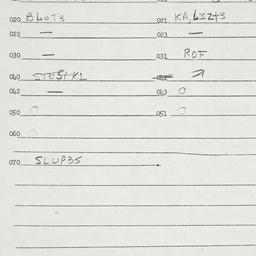 020 BLOT3 021 KA,63Z+3
022 — 023 —
030 — 031 ROF
040 STESPK1
042 — 043 O
050 O 051 O
060 O
070 SLUP35